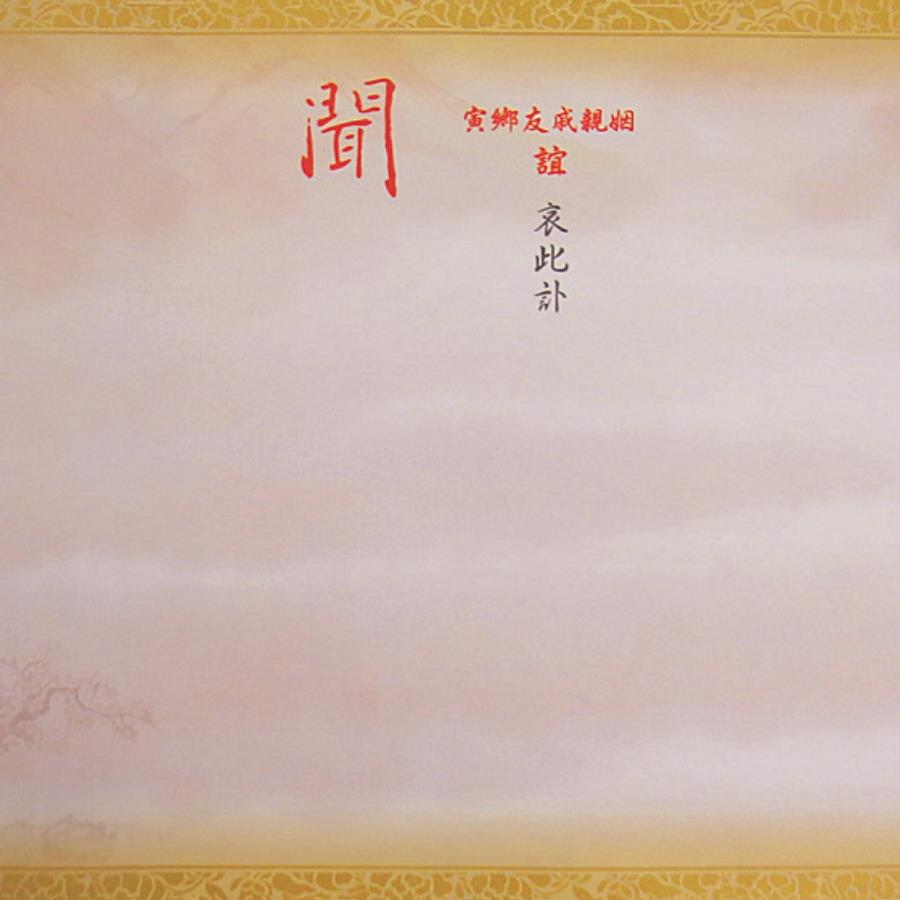 姻親戚友鄉寅
誼
哀此訃
聞